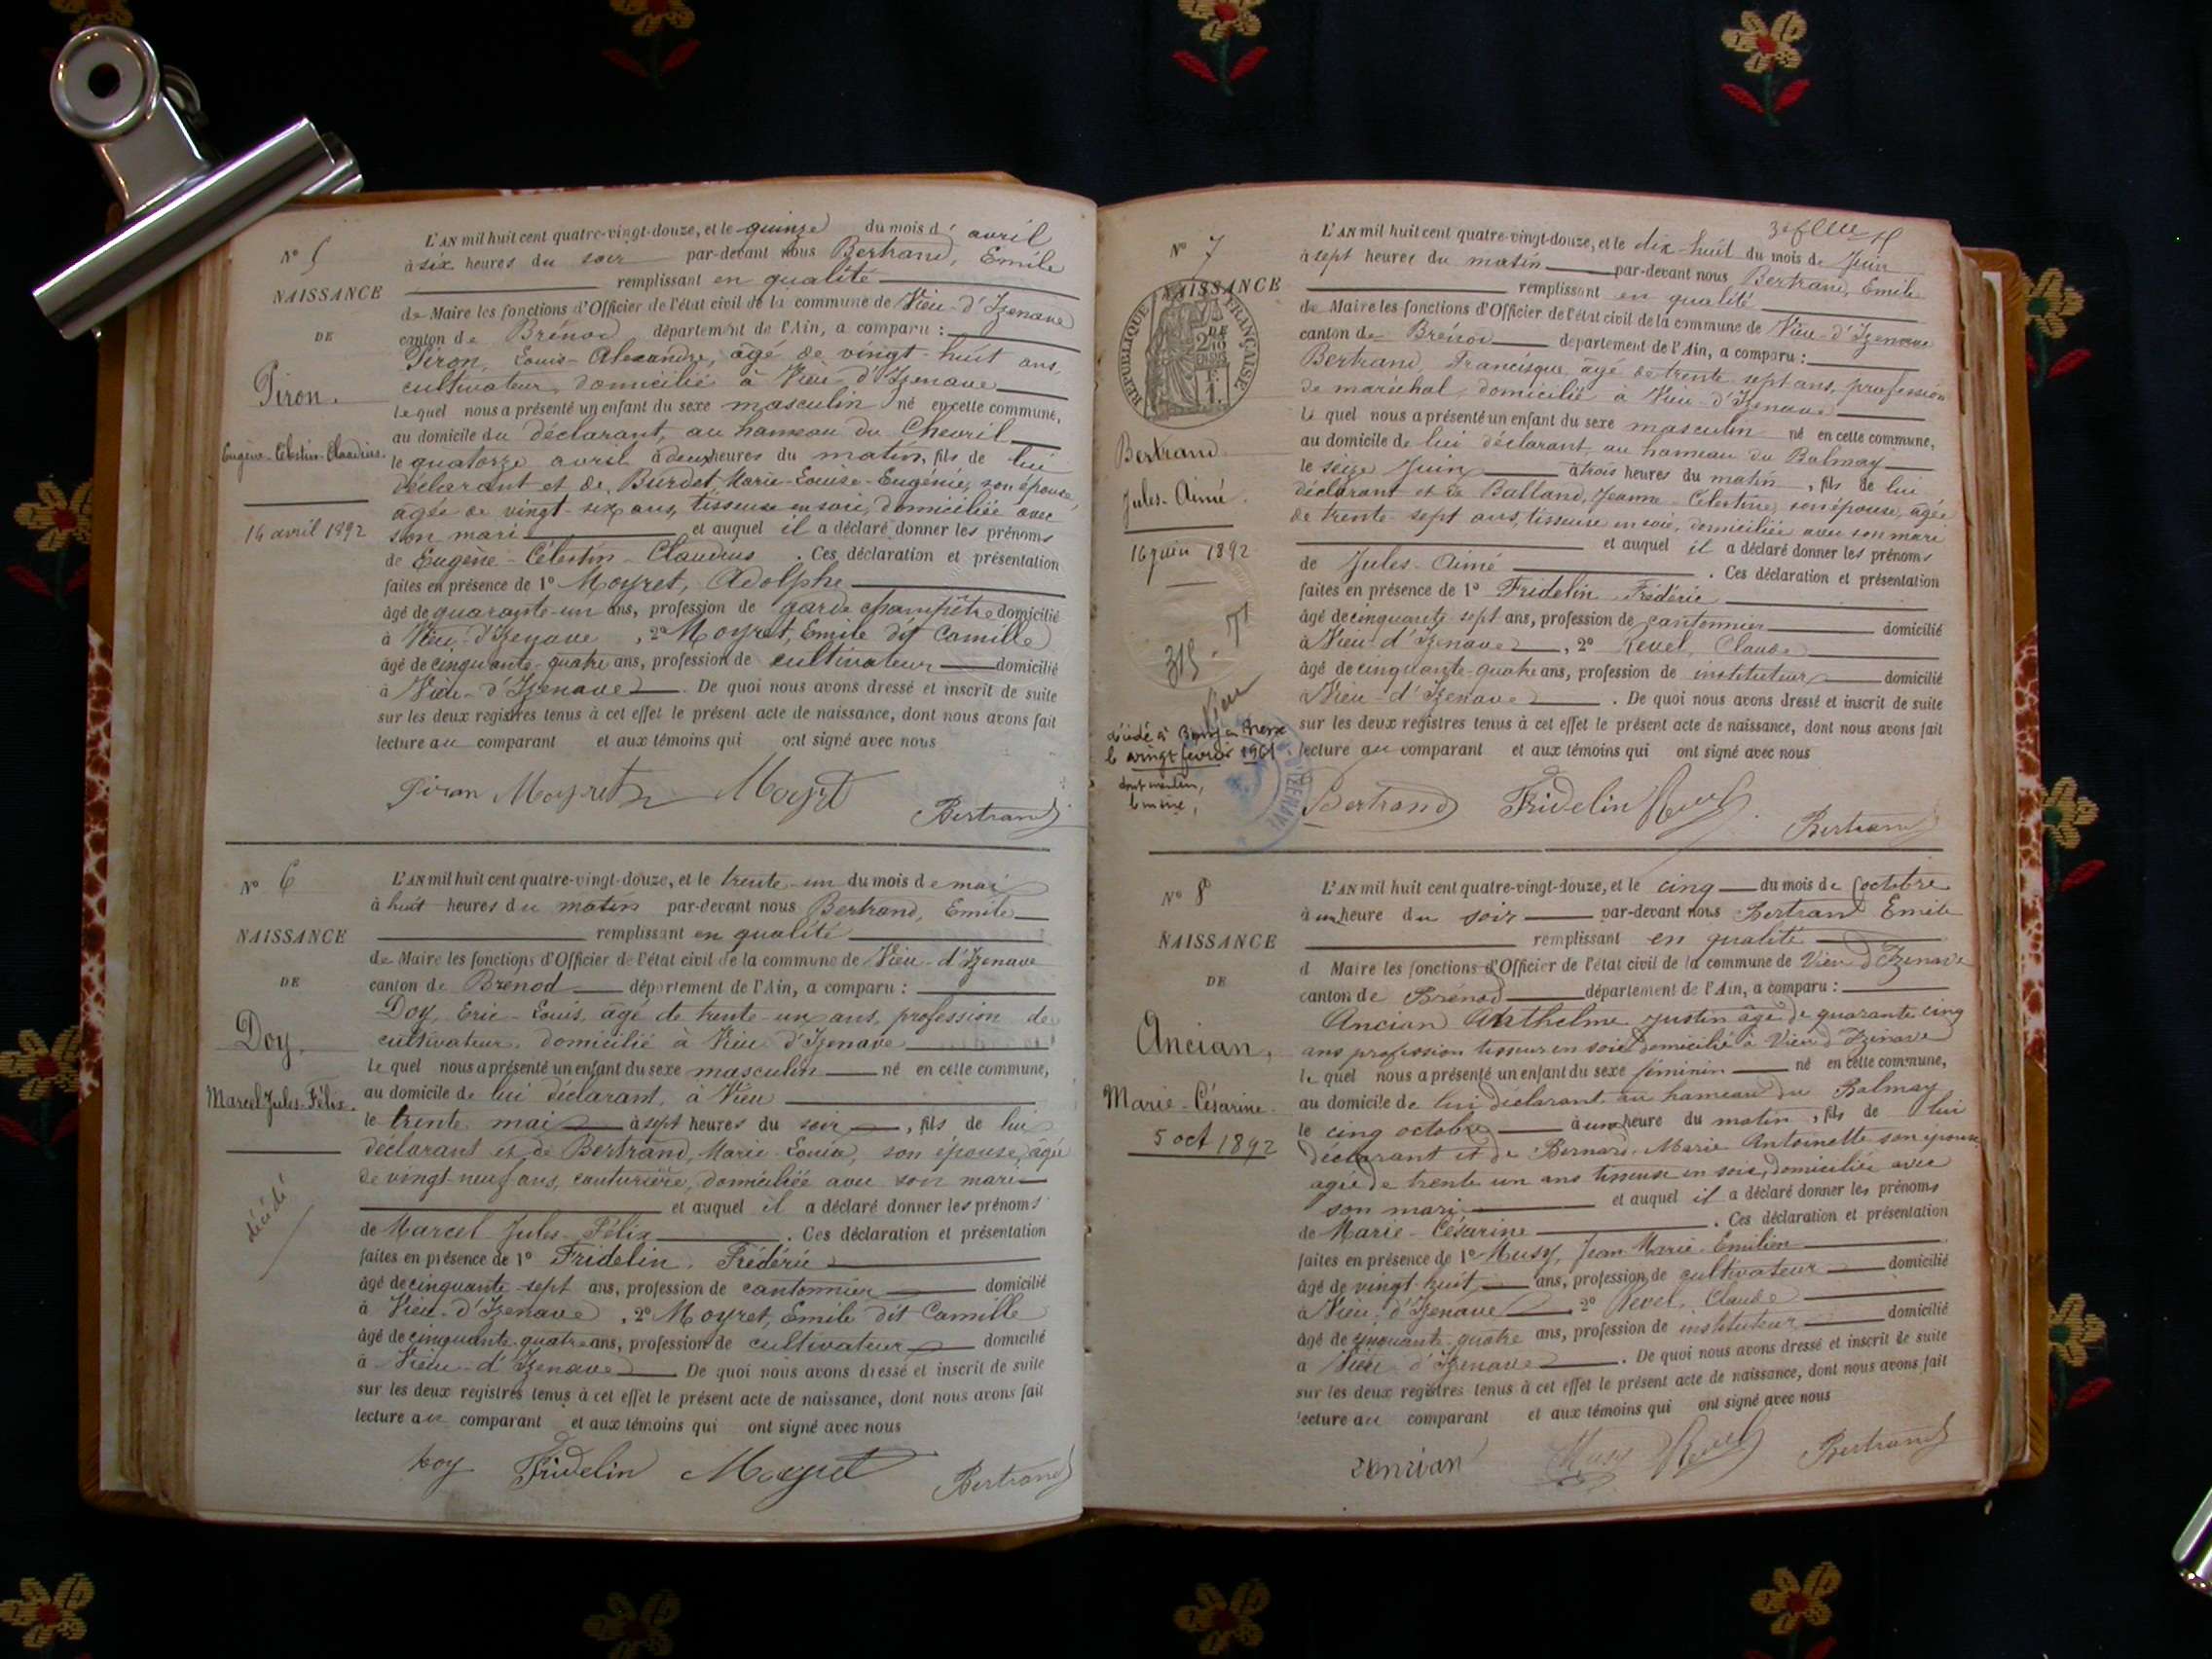 N° 5
NAISSANCE
DE
Piron.
Eugène-Célestin-Claudius.
14 avril 1892
L'AN mil huit cent quatre-vingt-douze, et le quinze du mois d' avril
à six heures du soir par-devant nous Bertrand, Emile
remplissant en qualité
de Maire les fonctions d'Officier de l'état civil de la commune de Vieu-d'Izenave
canton de Brénod département de l'Ain, a comparu :
Piron, Louis-Alexandre, âgé de vingt-huit ans,
cultivateur, domicilié à Vieu-d'Izenave
Le quel nous a présenté un enfant du sexe masculin né en cette commune,
au domicile du déclarant, au hameau du Chevril
le quatorze avril à deux heures du matin, fils de lui
déclarant et de Burdet Marie-Louise-Eugénie, son épouse,
agée de vingt-six ans, tisseuse en soie, domiciliée avec
son mari et auquel il a déclaré donner les prénoms
de Eugène-Célestin-Claudius . Ces déclaration et présentation
faites en présence de 1° Moyret, Adolphe
âgé de quarante-un ans, profession de garde champêtre domicilié
à Vieu-d'Izenave , 2° Moyret, Emile dit Camille
âgé de cinquante-quatre ans, profession de cultivateur domicilié
à Vieu-d'Izenave . De quoi nous avons dressé et inscrit de suite
sur les deux registres tenus à cet effet le présent acte de naissance, dont nous avons fait
lecture au comparant et aux témoins qui ont signé avec nous
Piron Moyret Moyret
Bertrand
N° 6
NAISSANCE
DE
Doy.
Marcel Jules-Félix.
décédé
L'AN mil huit cent quatre-vingt-douze, et le trente-un du mois de mai
à huit heures du matin par-devant nous Bertrand, Emile
remplissant en qualité
de Maire les fonctions d'Officier de l'état civil de la commune de Vieu-d'Izenave
canton de Brenod département de l'Ain, a comparu :
Doy, Eric-Louis, âgé de trente-un ans, profession de
cultivateur, domicilié à Vieu d'Izenave
Le quel nous a présenté un enfant du sexe masculin né en cette commune,
au domicile de lui déclarant, à Vieu
le trente mai à sept heures du soir , fils de lui
déclarant et de Bertrand, Marie-Louise, son épouse, âgée
de vingt-neuf ans, couturière, domiciliée avec son mari
et auquel il a déclaré donner les prénoms
de Marcel-Jules-Félix . Ces déclaration et présentation
faites en présence de 1° Fridelin, Frédéric
âgé de cinquante-sept ans, profession de cantonnier domicilié
à Vieu-d'Izenave , 2° Moyret, Emile dit Camille
âgé de cinquante-quatre ans, profession de cultivateur domicilié
à Vieu-d'Izenave . De quoi nous avons dressé et inscrit de suite
sur les deux registres tenus à cet effet le présent acte de naissance, dont nous avons fait
lecture au comparant et aux témoins qui ont signé avec nous
Doy Fridelin Moyret Bertrand
N° 7
NAISSANCE
DE
RÉPUBLIQUE FRANÇAISE
Bertrand.
Jules-Aimé.
16 juin 1892
315
Vieu
décédé à Bourg en Bresse
le vingt février 1961
dont mention,
le maire,
L'AN mil huit cent quatre-vingt-douze, et le dix-huit du mois de Juin
à sept heures du matin par-devant nous Bertrand, Emile
remplissant en qualité
de Maire les fonctions d'Officier de l'état civil de la commune de Vieu-d'Izenave
canton de Brénod département de l'Ain, a comparu :
Bertrand, Francisque, âgé de trente-sept ans, profession
de maréchal, domicilié à Vieu-d'Izenave
Le quel nous a présenté un enfant du sexe masculin né en cette commune,
au domicile de lui déclarant au hameau du Balmay
le seize Juin à trois heures du matin , fils de lui
déclarant et de Balland, Jeanne-Célestine, son épouse, agée
de trente-sept ans, tisseuse en soie, domiciliée avec son mari
et auquel il a déclaré donner les prénoms
de Jules-Aimé . Ces déclaration et présentation
faites en présence de 1° Fridelin Frédéric
âgé de cinquante sept ans, profession de cantonnier domicilié
à Vieu-d'Izenave , 2° Revel, Claude
âgé de cinquante-quatre ans, profession de instituteur domicilié
à Vieu-d'Izenave . De quoi nous avons dressé et inscrit de suite
sur les deux registres tenus à cet effet le présent acte de naissance, dont nous avons fait
lecture au comparant et aux témoins qui ont signé avec nous
Bertrand Fridelin Revel
Bertrand
N° 8
NAISSANCE
DE
Ancian,
Marie-Césarine.
5 oct 1892
L'AN mil huit cent quatre-vingt-douze, et le cinq du mois de octobre
à une heure du soir par-devant nous Bertrand Emile
remplissant en qualité
d Maire les fonctions d'Officier de l'état civil de la commune de Vieu d'Izenave
canton de Brénod département de l'Ain, a comparu :
Ancian Anthelme Justin âgé de quarante cinq
ans profession tisseur en soie domicilié à Vieu d'Izenave
le quel nous a présenté un enfant du sexe féminin né en cette commune,
au domicile de lui déclarant au hameau du Balmay
le cinq octobre à une heure du matin , fils de lui
déclarant et de Bernard Marie Antoinette son épouse
agée de trente un ans tisseuse en soie, domiciliée avec
son mari et auquel il a déclaré donner les prénoms
de Marie-Césarine . Ces déclaration et présentation
faites en présence de 1° Musy, Jean Marie-Emilien
âgé de vingt-huit ans, profession de cultivateur domicilié
à Vieu-d'Izenave 2° Revel, Claude
âgé de cinquante-quatre ans, profession de instituteur domicilié
à Vieu-d'Izenave . De quoi nous avons dressé et inscrit de suite
sur les deux registres tenus à cet effet le présent acte de naissance, dont nous avons fait
lecture au comparant et aux témoins qui ont signé avec nous
Ancian Musy Revel Bertrand